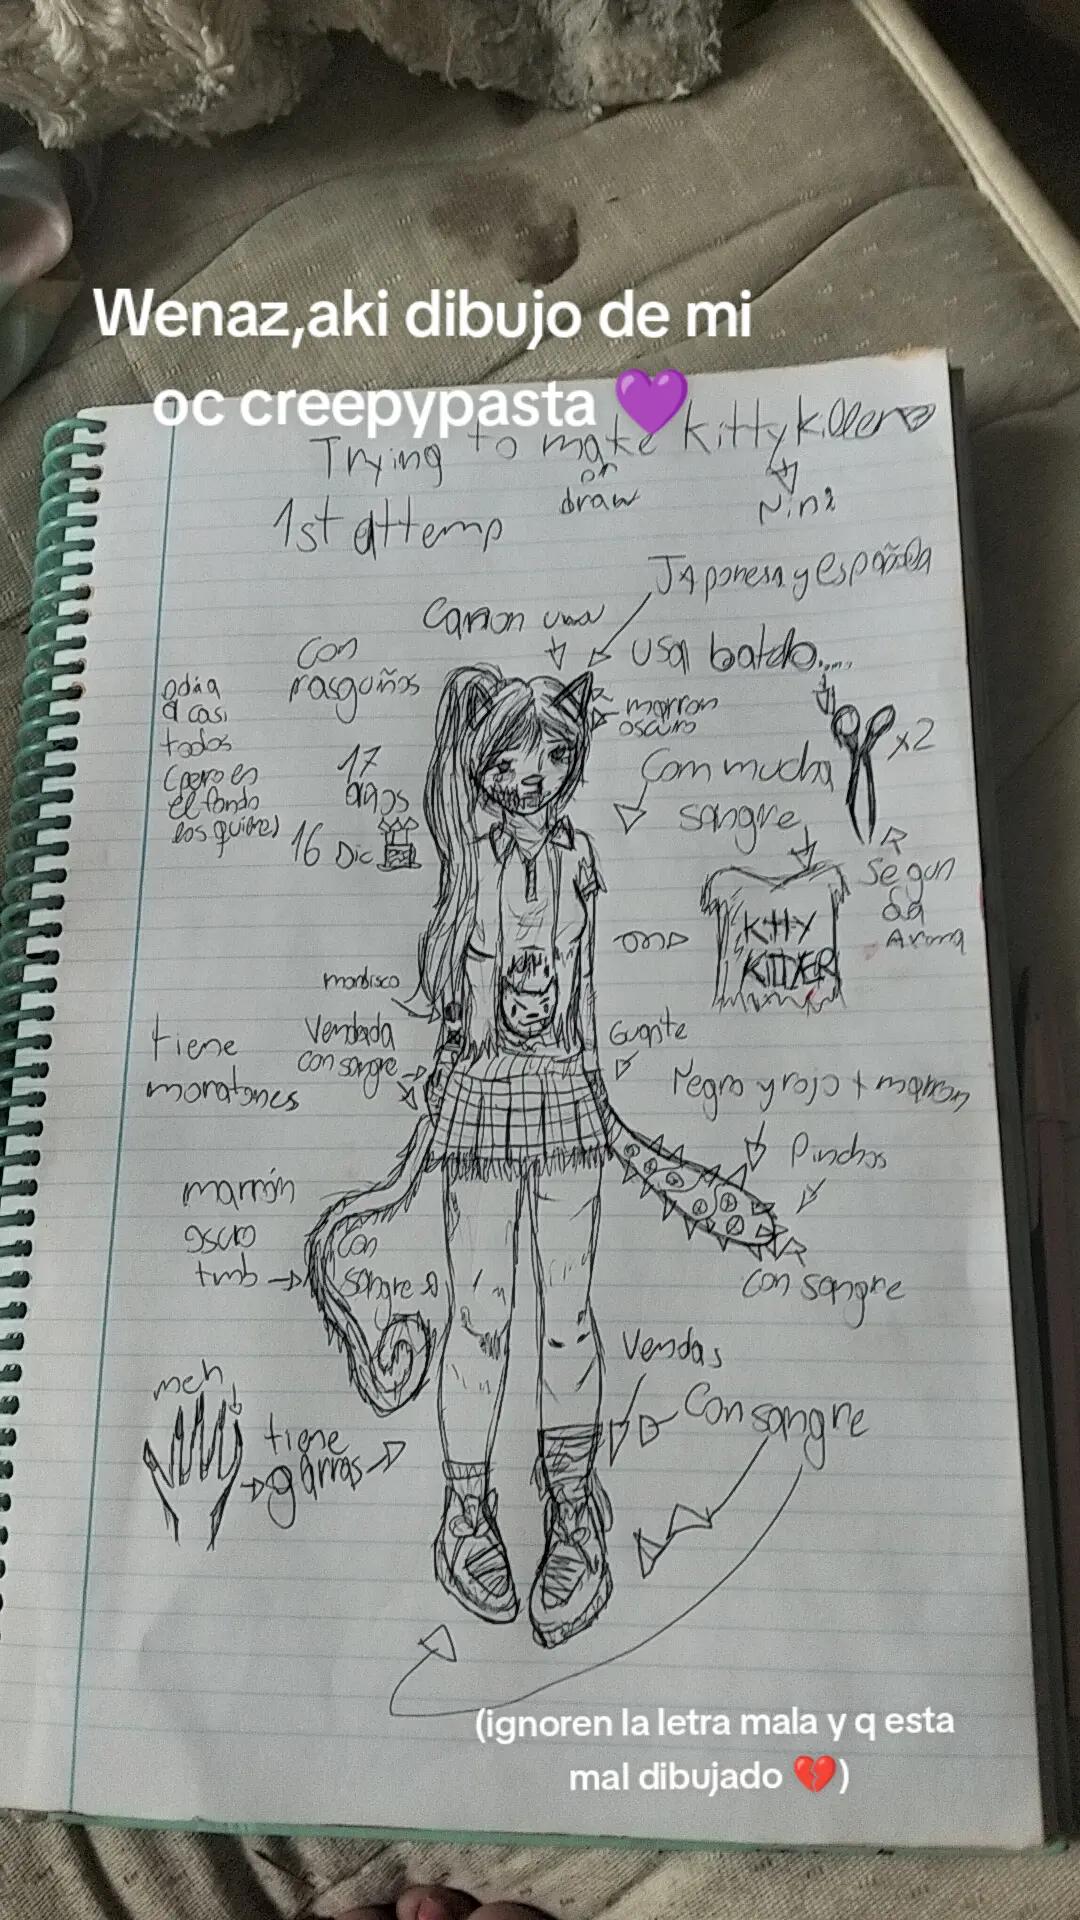 Wenaz,aki dibujo de mi
oc creepypasta 💜
Trying to make kittykiller
or
draw
Nini
1st attemp
Japonesa y española
usa batdo....
con
rasguños
marron
oscuro
odia
a casi
todos
(pero en
el fondo
los quiere)
17
años
16 Dic
x2
Con mucha
sangre
Segun
da
Arma
Kitty
KILLER
mordisco
Vendada
con sangre
tiene
moratones
Guante
Negro y rojo + marron
Pinchos
marrón
oscuro
tmb
Con
sangre
con sangre
Vendas
Con sangre
meh
tiene
garras
(ignoren la letra mala y q esta
mal dibujado 💔)